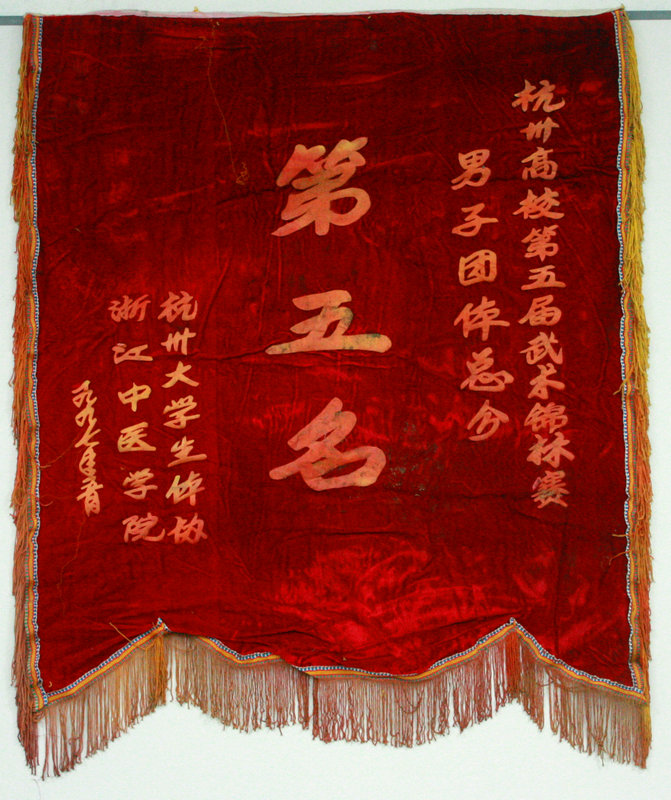 杭州高校第五届武术锦标赛
男子团体总分
第五名
杭州大学生体协
浙江中医学院
一九九七年五月